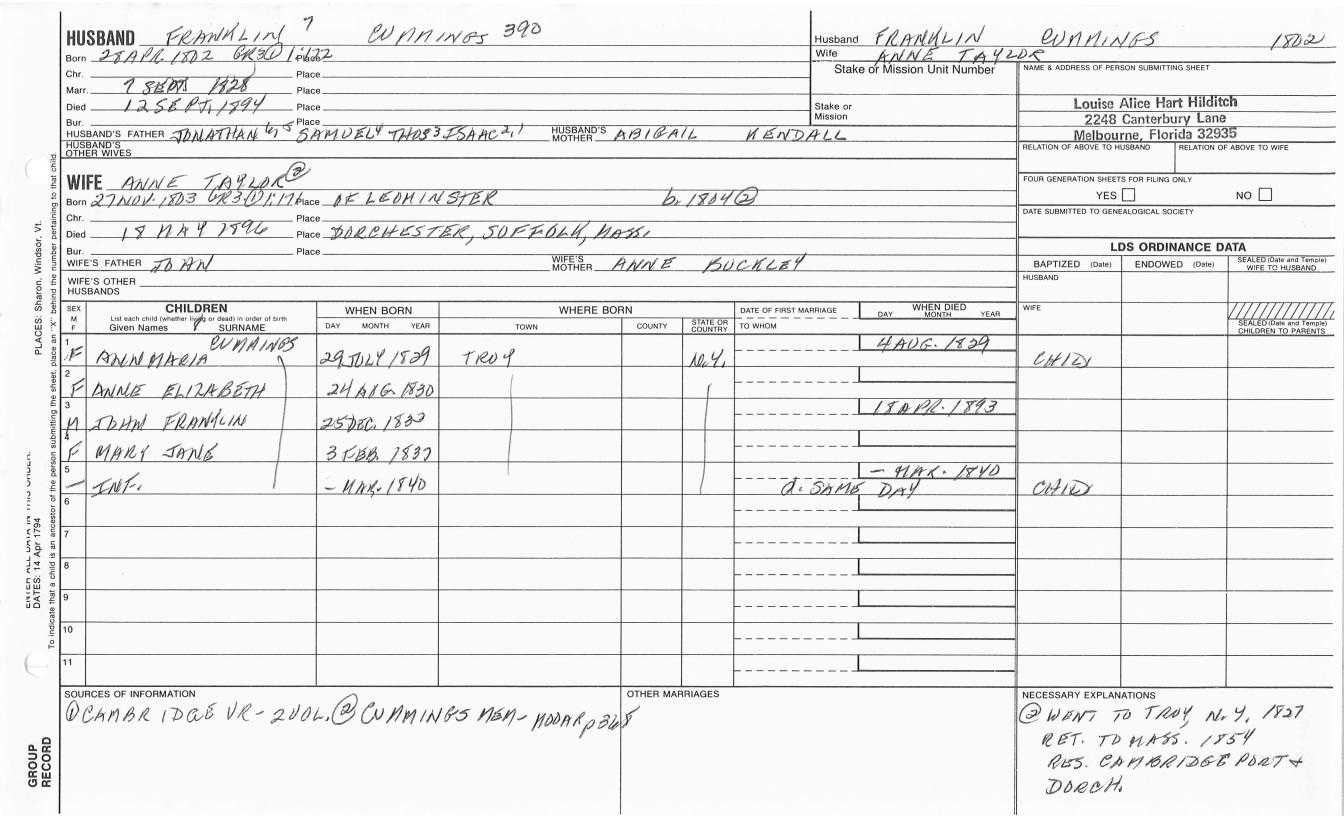 HUSBAND FRANKLIN 7 CUMMINGS 390
Born 28 APR. 1802 GR3① 1:122 Place
Chr. Place
Marr. 7 SEPT 1828 Place
Died 12 SEPT, 1894 Place
Bur. Place
HUSBAND'S FATHER JONATHAN 6,5 SAMUEL4 THOS3 ISAAC2,1 HUSBAND'S MOTHER ABIGAIL KENDALL
HUSBAND'S OTHER WIVES
Husband FRANKLIN CUMMINGS 1802
Wife ANNE TAYLOR
Stake or Mission Unit Number
Stake or Mission
NAME & ADDRESS OF PERSON SUBMITTING SHEET
Louise Alice Hart Hilditch
2248 Canterbury Lane
Melbourne, Florida 32935
RELATION OF ABOVE TO HUSBAND RELATION OF ABOVE TO WIFE
FOUR GENERATION SHEETS FOR FILING ONLY
YES NO
DATE SUBMITTED TO GENEALOGICAL SOCIETY
WIFE ANNE TAYLOR②
Born 27 NOV. 1803 GR3① 1: Place OF LEOMINSTER b. 1804②
Chr. Place
Died 18 MAY 1896 Place DORCHESTER, SUFFOLK, MASS.
Bur. Place
WIFE'S FATHER JOHN WIFE'S MOTHER ANNE BUCKLEY
WIFE'S OTHER HUSBANDS
LDS ORDINANCE DATA
BAPTIZED (Date) ENDOWED (Date) SEALED (Date and Temple) WIFE TO HUSBAND
HUSBAND
WIFE
SEALED (Date and Temple) CHILDREN TO PARENTS
SEX M F
CHILDREN
List each child (whether living or dead) in order of birth
Given Names SURNAME
WHEN BORN
DAY MONTH YEAR
WHERE BORN
TOWN COUNTY STATE OR COUNTRY
DATE OF FIRST MARRIAGE
TO WHOM
WHEN DIED
DAY MONTH YEAR
1 F ANN MARIA CUMMINGS 29 JULY 1829 TROY N.Y. 4 AUG. 1829 CHILD
2 F ANNE ELIZABETH 24 AUG. 1830
3 M JOHN FRANKLIN 25 DEC. 18 APR. 1893
4 F MARY JANE 3 FEB. 1837
5 — INF. — MAR. 1840 — MAR. 1840
d. SAME DAY CHILD
6
7
8
9
10
11
SOURCES OF INFORMATION
① CAMBRIDGE VR - 2 VOL. ② CUMMINGS MEM - MOOAR p 368
OTHER MARRIAGES
NECESSARY EXPLANATIONS
② WENT TO TROY, N.Y. 1827
RET. TO MASS. 1854
RES. CAMBRIDGE PORT +
DORCH.
PLACES: Sharon, Windsor, Vt.
ENTER ALL DATA IN THIS ORDER:
DATES: 14 Apr 1794
To indicate that a child is an ancestor of the person submitting the sheet, place an "X" behind the number pertaining to that child.
GROUP
RECORD